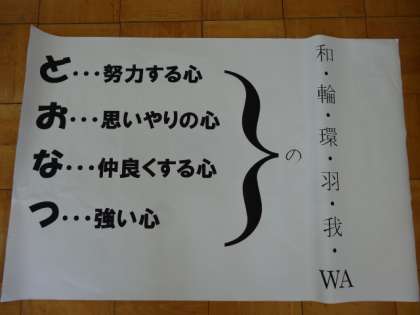 ど・・・努力する心
お・・・思いやりの心
な・・・仲良くする心
つ・・・強い心
の
和・輪・環・羽・我・WA